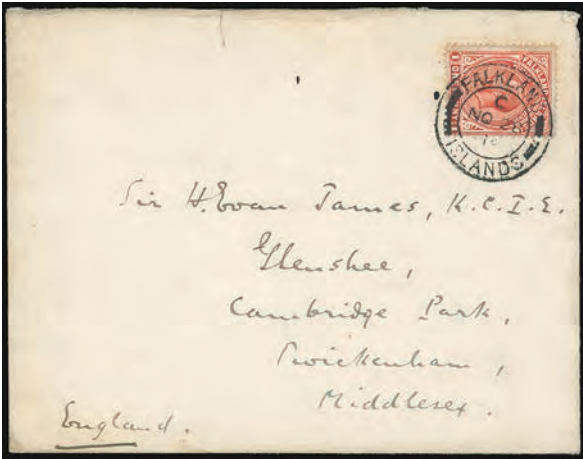 FALKLAND
C
NO 28
ISLANDS
Sir H. Evan James, K.C.I.E.
Glenshee,
Cambridge Park,
Twickenham,
Middlesex.
England.